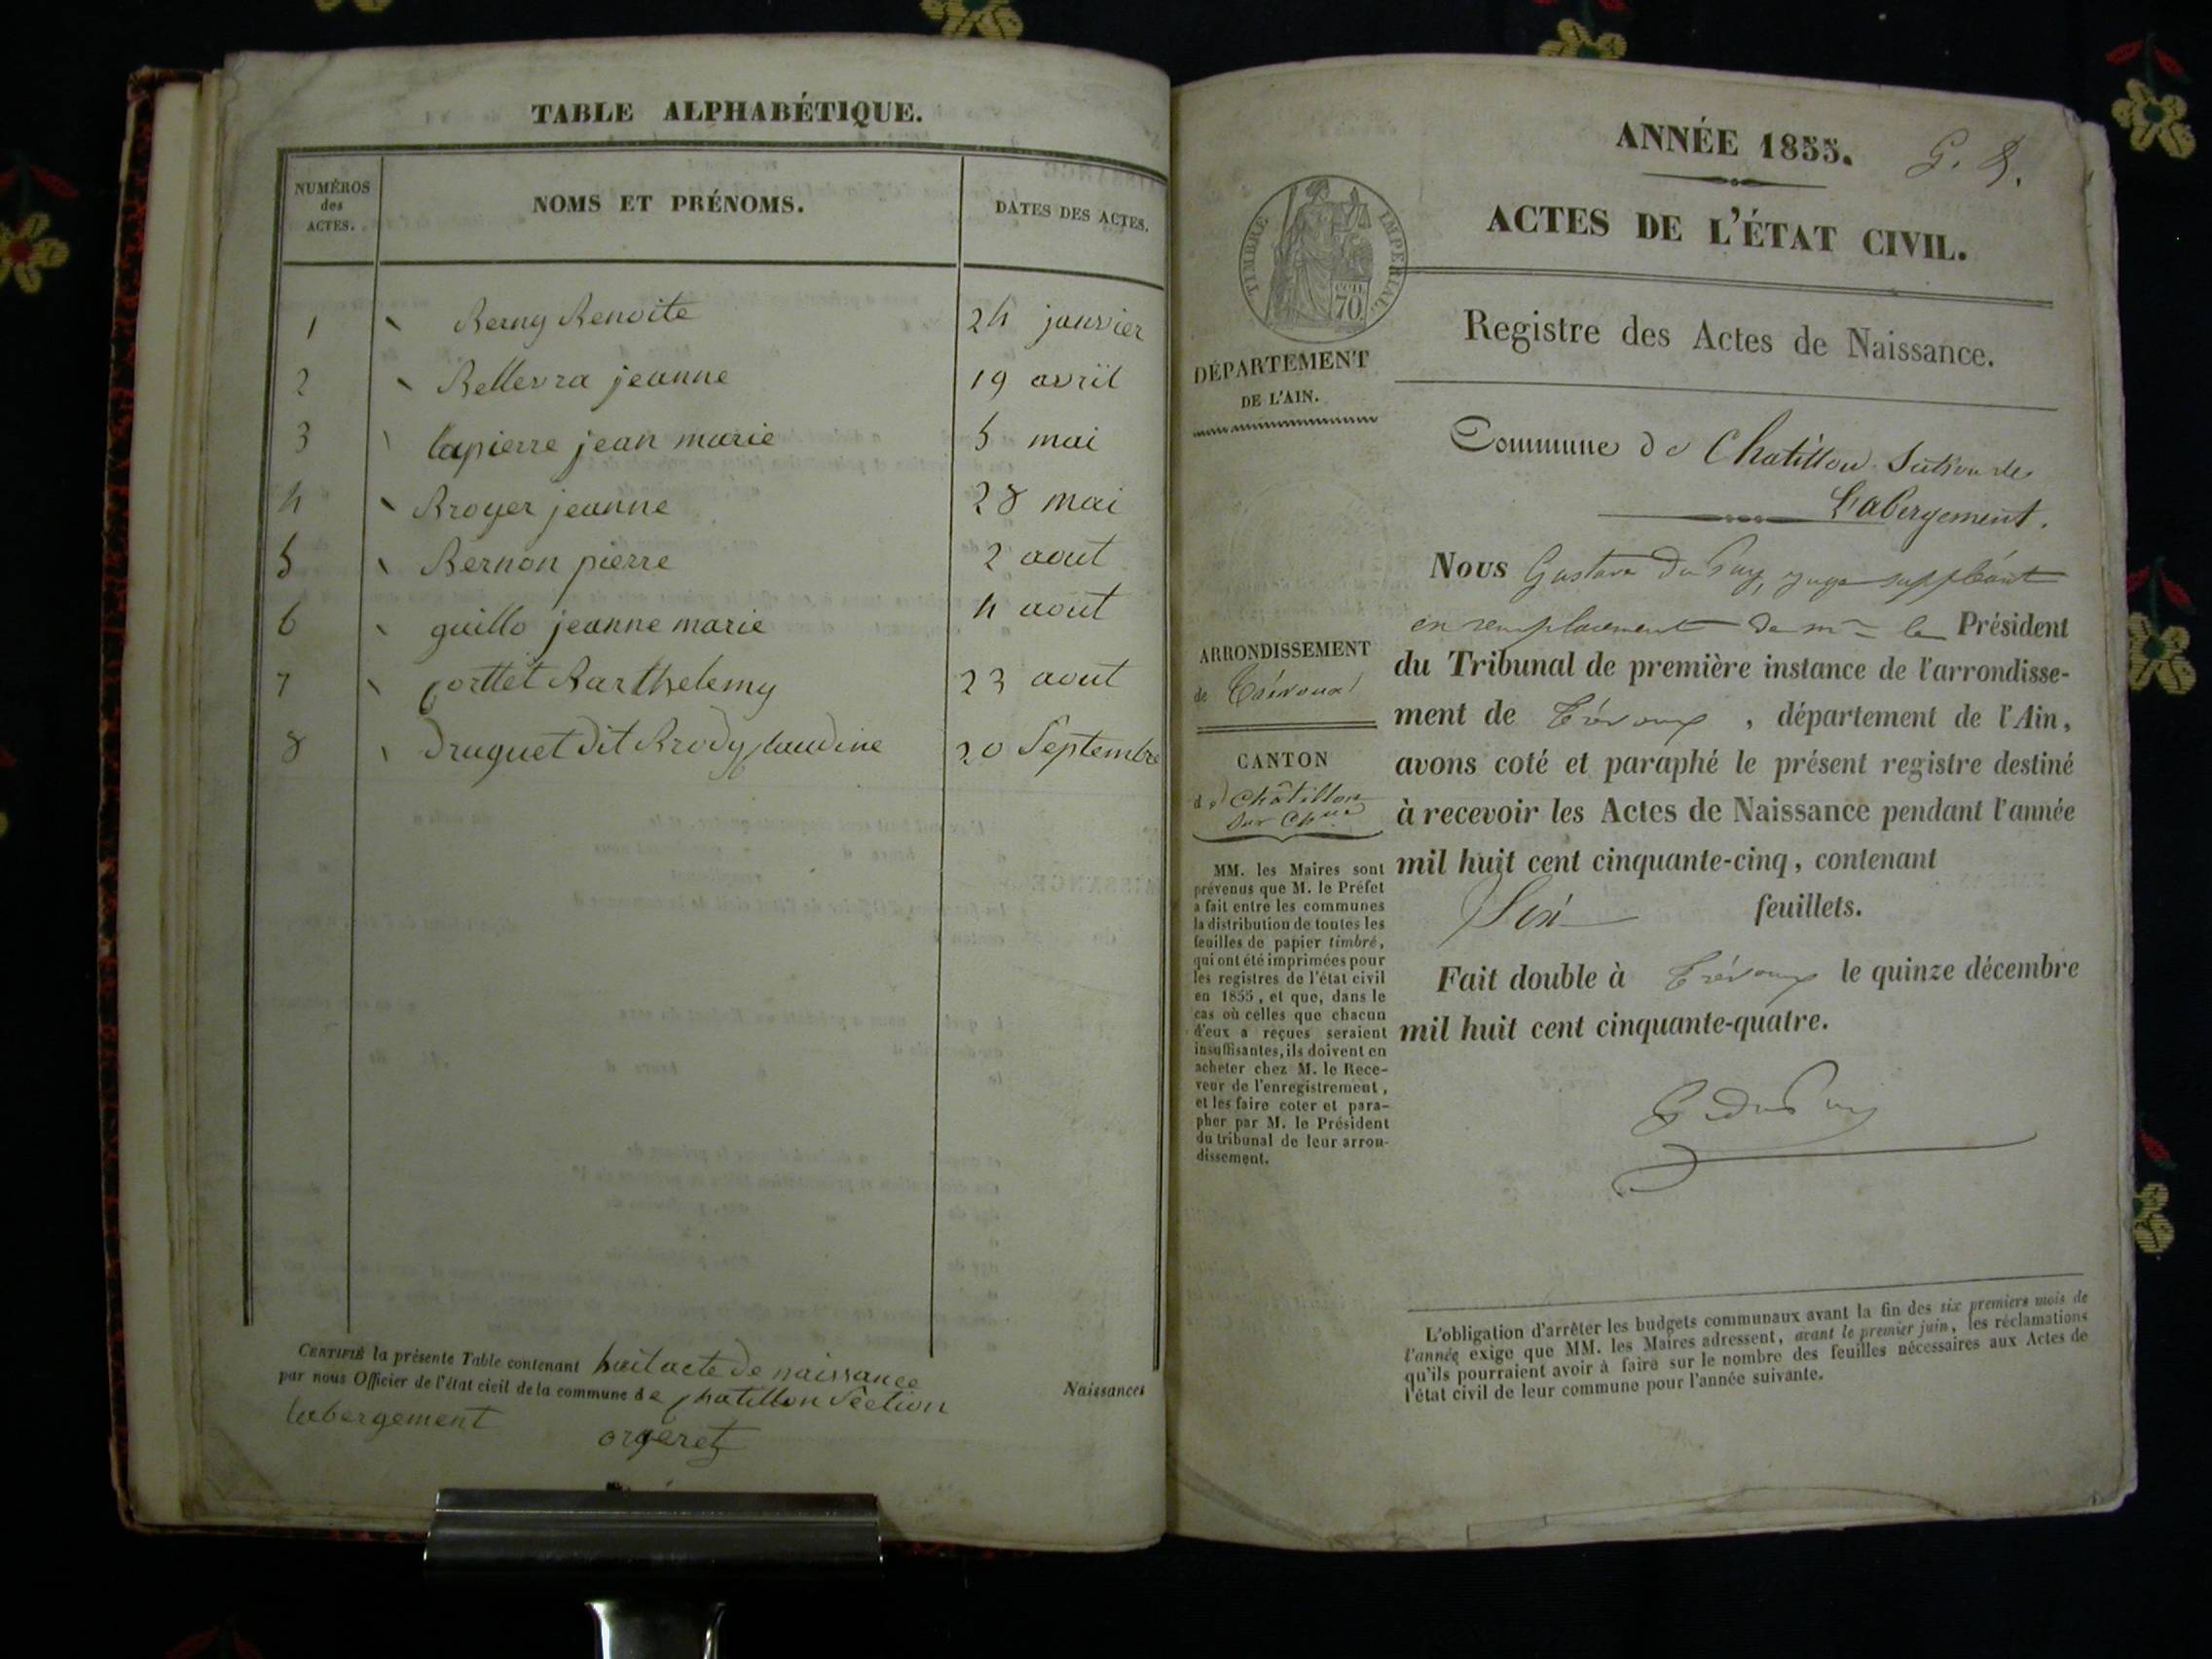 TABLE ALPHABÉTIQUE.
NUMÉROS des ACTES.
NOMS ET PRÉNOMS.
DATES DES ACTES.
1 Berny Benoite 24 janvier
2 Bellevra jeanne 19 avril
3 lapierre jean marie 5 mai
4 Broyer jeanne 28 mai
5 Bernon pierre 2 aout
6 guillo jeanne marie 4 aout
7 Corttet Barthelemy 23 aout
8 Druguet dit Brody Claudine 20 Septembre
CERTIFIÉ la présente Table contenant huit acte de naissance
par nous Officier de l'état civil de la commune de Chatillon Section
labergement
orgeret
Naissances
ANNÉE 1855. G. D.
ACTES DE L'ÉTAT CIVIL.
TIMBRE IMPERIAL
CEN 70
Registre des Actes de Naissance.
DÉPARTEMENT
DE L'AIN.
Commune de Chatillon Section de
L'abergement.
Nous Gustave DuPuy, juge suppléant
en remplacement de mr le Président
du Tribunal de première instance de l'arrondisse-
ment de Trévoux, département de l'Ain,
avons coté et paraphé le présent registre destiné
à recevoir les Actes de Naissance pendant l'année
mil huit cent cinquante-cinq, contenant
Six feuillets.
Fait double à Trévoux le quinze décembre
mil huit cent cinquante-quatre.
G. DuPuy
ARRONDISSEMENT
de Trévoux
CANTON
de Châtillon
sur Chne
MM. les Maires sont
prévenus que M. le Préfet
a fait entre les communes
la distribution de toutes les
feuilles de papier timbré,
qui ont été imprimées pour
les registres de l'état civil
en 1855, et que, dans le
cas où celles que chacun
d'eux a reçues seraient
insuffisantes, ils doivent en
acheter chez M. le Rece-
veur de l'enregistrement,
et les faire coter et para-
pher par M. le Président
du tribunal de leur arron-
dissement.
L'obligation d'arrêter les budgets communaux avant la fin des six premiers mois de
l'année exige que MM. les Maires adressent, avant le premier juin, les réclamations
qu'ils pourraient avoir à faire sur le nombre des feuilles nécessaires aux Actes de
l'état civil de leur commune pour l'année suivante.